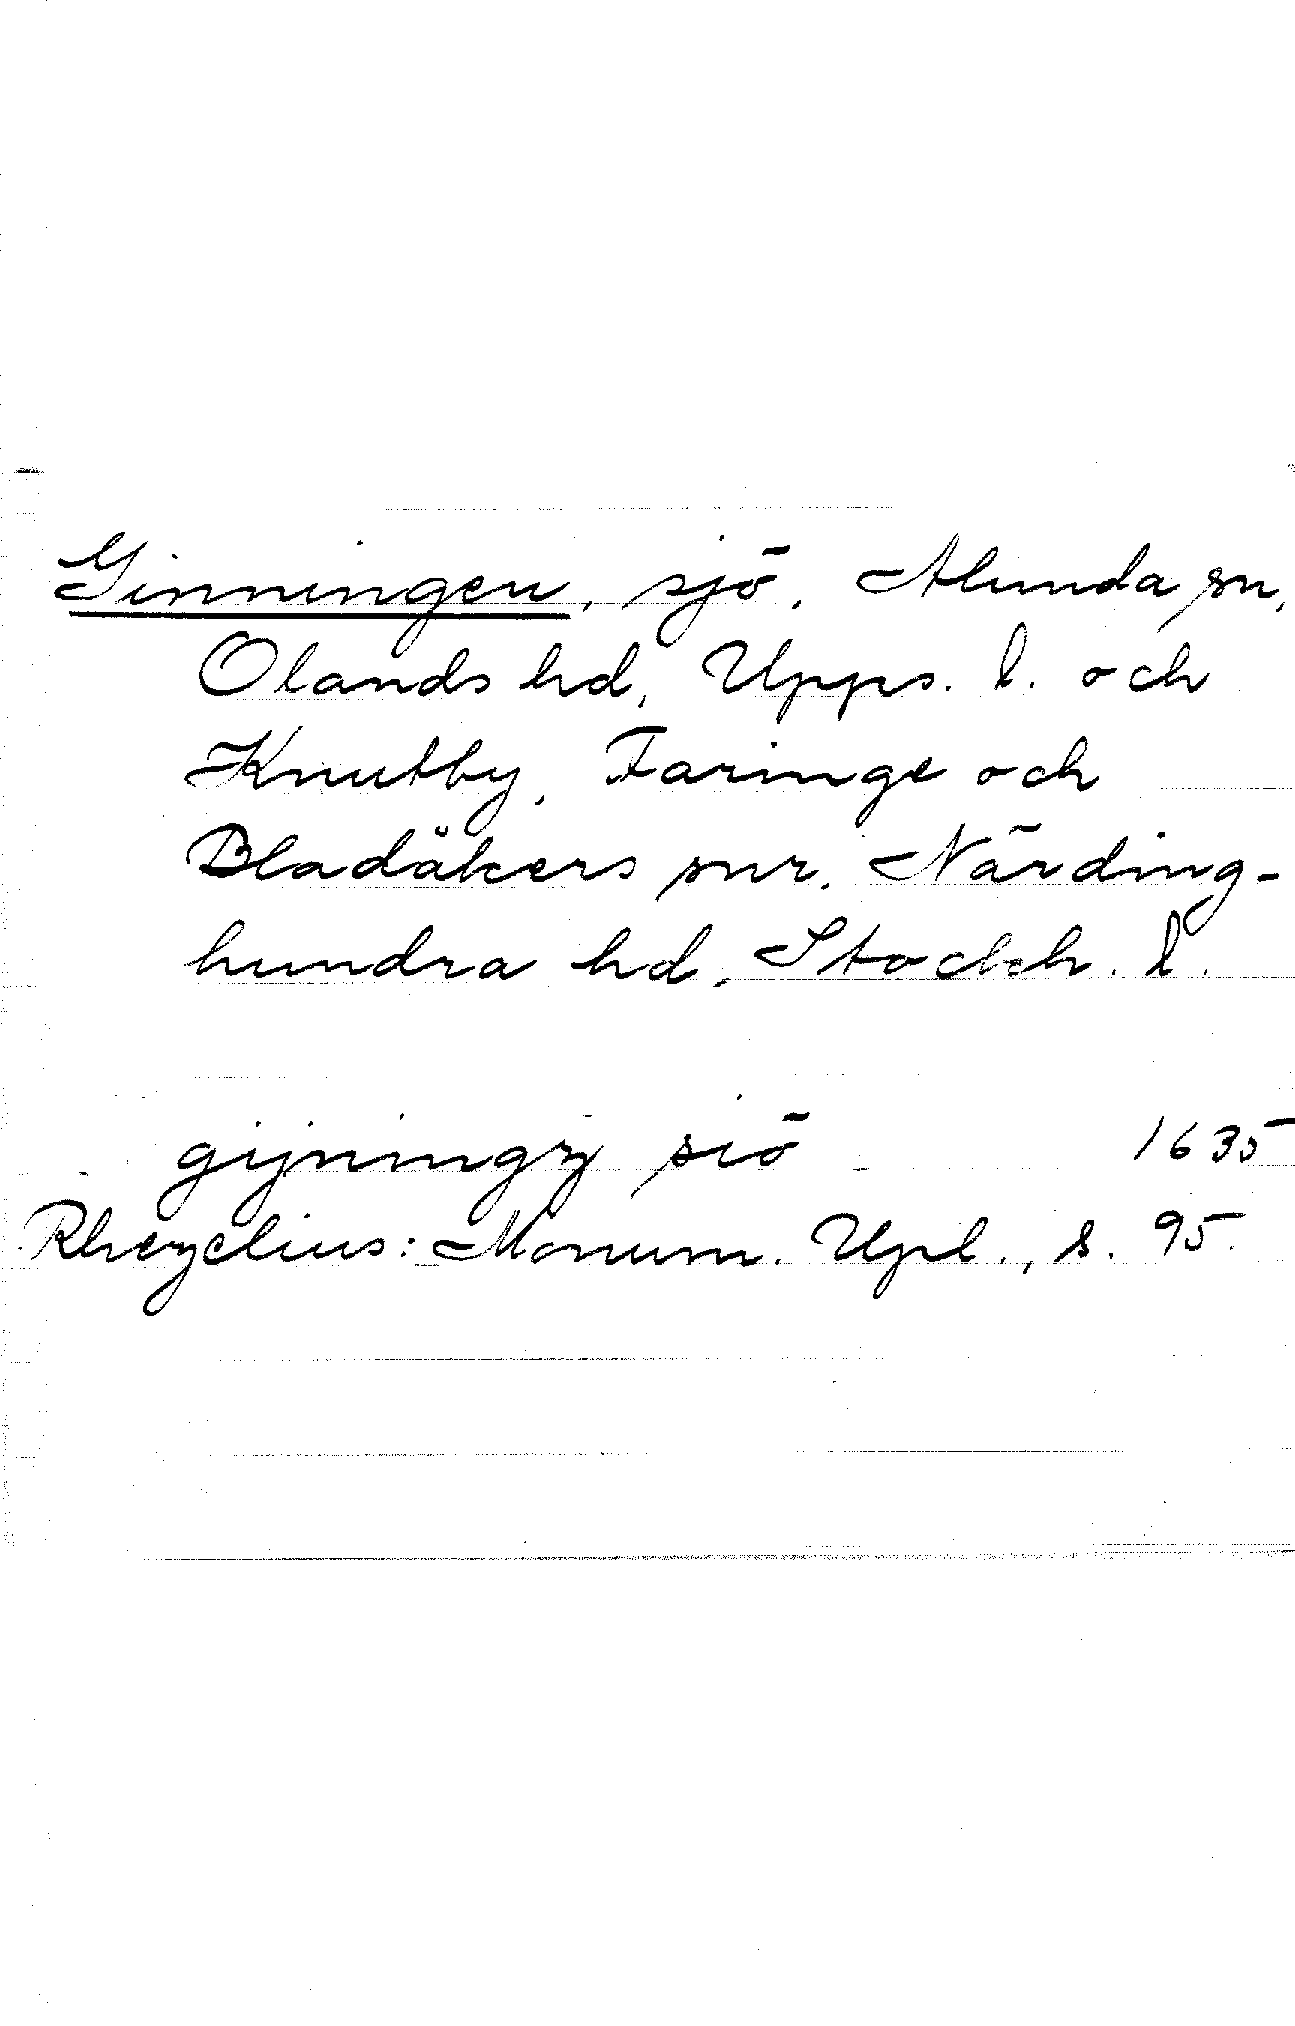 Ginningen, sjö, Alunda sn,
Olands hd, Upps. l. och
Knutby, Faringe och
Bladåkers snr, Närding-
hundra hd, Stockh. l.
gijningz siö 1635
Rhezelius: Monum. Upl., s. 95.